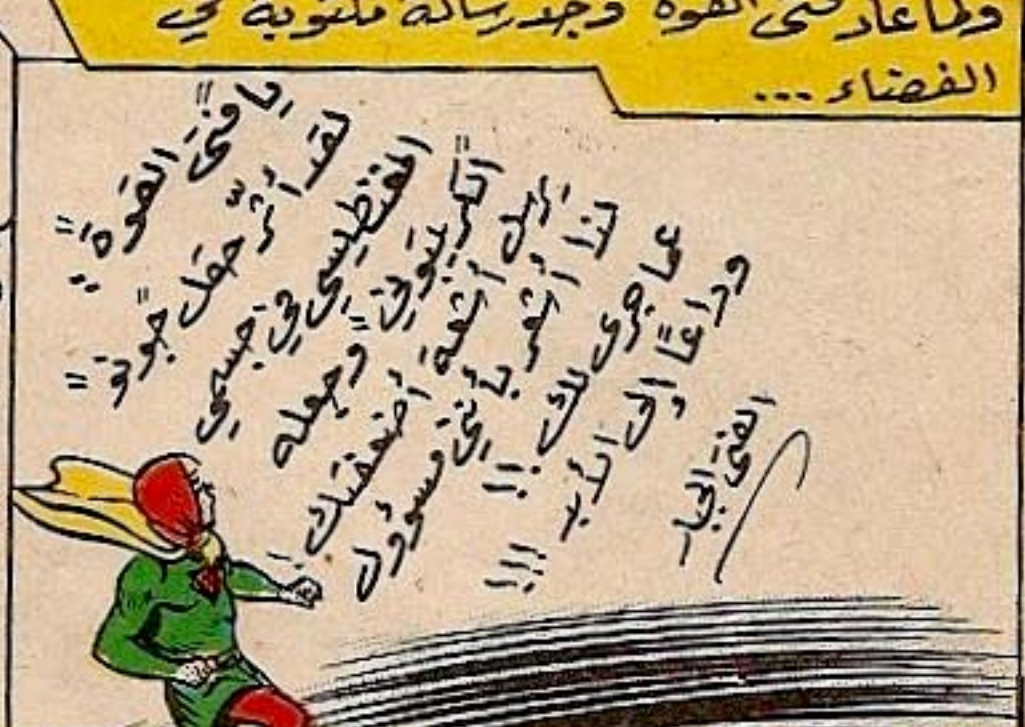 ولما عاد فتى القوة وجد رسالة مكتوبة في
الفضاء ...
يا "فتى القوة" :
لقد أثّر حقل
المغنطيسي في جسمي
"الكربتوني" وجعله
يرسل أشعة أضعفتك
لذا أشعر بأني مسؤول
عما جرى لك !!
وداعًا إلى الأبد !!!
الفتى الجبار